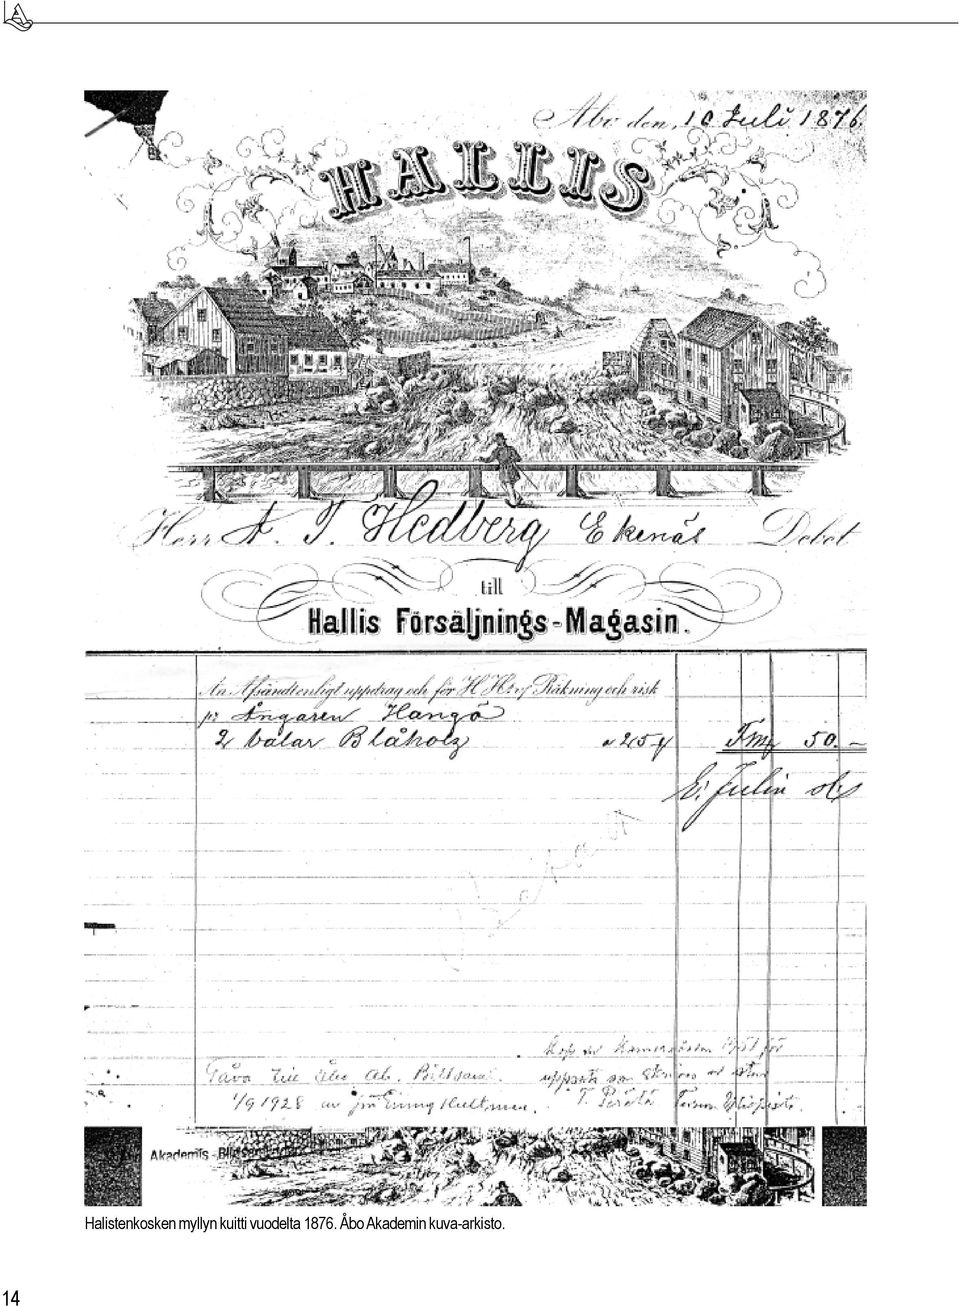 Åbo den, 10 Juli 1876.
HALLIS
Herr A. J. Hedberg Ekenäs Debet
till
Hallis Försäljnings-Magasin.
An Afsändt enligt uppdrag och för H Hrrs Räkning och risk
pr Ångaren Hangö
2 balar Blåholz a 25 Fmg 50.—
E: Julin
Gåva till Åbo Ak.
1/9 1928 av Hultman.
Akademis - Bild
Halistenkosken myllyn kuitti vuodelta 1876. Åbo Akademin kuva-arkisto.
14